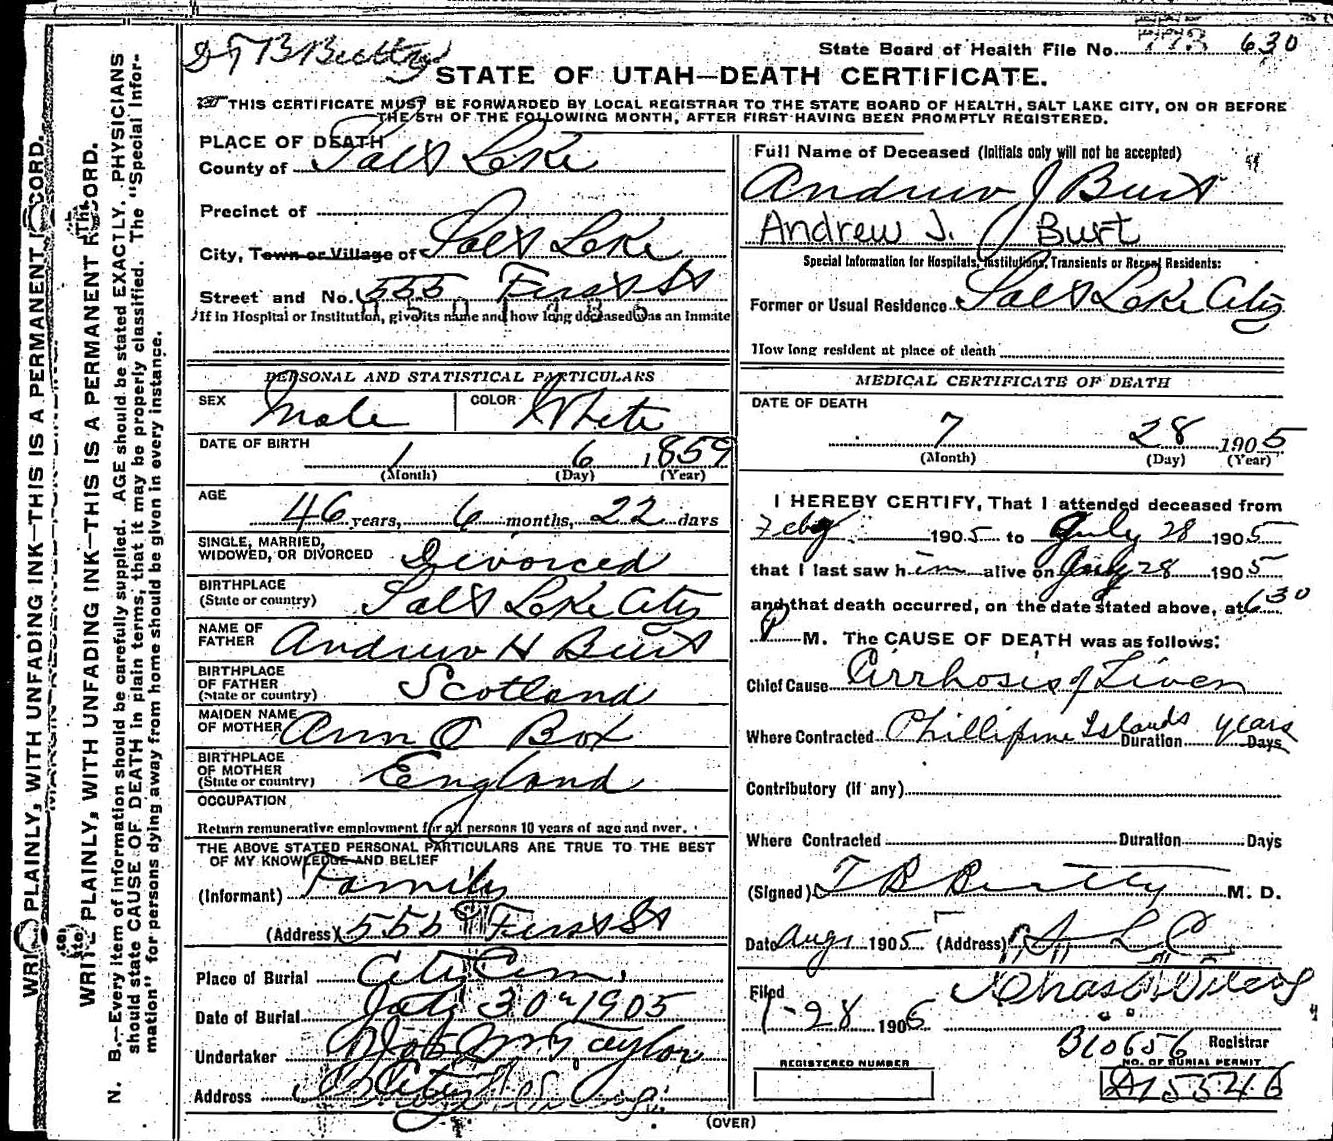 State Board of Health File No. 773 630
STATE OF UTAH—DEATH CERTIFICATE.
THIS CERTIFICATE MUST BE FORWARDED BY LOCAL REGISTRAR TO THE STATE BOARD OF HEALTH, SALT LAKE CITY, ON OR BEFORE
THE 5TH OF THE FOLLOWING MONTH, AFTER FIRST HAVING BEEN PROMPTLY REGISTERED.
PLACE OF DEATH
County of Salt Lake
Precinct of
City, Town or Village of Salt Lake
Street and No. 555 First St
If in Hospital or Institution, give its name and how long deceased was an Inmate
PERSONAL AND STATISTICAL PARTICULARS
SEX Male COLOR White
DATE OF BIRTH
1 6 1859
(Month) (Day) (Year)
AGE
46 years, 6 months, 22 days
SINGLE, MARRIED,
WIDOWED, OR DIVORCED Divorced
BIRTHPLACE
(State or country) Salt Lake City
NAME OF
FATHER Andrew H Burt
BIRTHPLACE
OF FATHER
(State or country) Scotland
MAIDEN NAME
OF MOTHER Ann O Box
BIRTHPLACE
OF MOTHER
(State or country) England
OCCUPATION
Return remunerative employment for all persons 10 years of age and over.
THE ABOVE STATED PERSONAL PARTICULARS ARE TRUE TO THE BEST
OF MY KNOWLEDGE AND BELIEF
(Informant) Family
(Address) 555 First St
Place of Burial City Cem.
Date of Burial July 30 1905
Undertaker Taylor
Address City
Full Name of Deceased (Initials only will not be accepted)
Andrew J Burt
Andrew J. Burt
Special Information for Hospitals, Institutions, Transients or Recent Residents:
Former or Usual Residence Salt Lake City
How long resident at place of death
MEDICAL CERTIFICATE OF DEATH
DATE OF DEATH
7 28 1905
(Month) (Day) (Year)
I HEREBY CERTIFY, That I attended deceased from
Feby 1905 to July 28 1905
that I last saw him alive on July 28 1905
and that death occurred, on the date stated above, at 630
P M. The CAUSE OF DEATH was as follows:
Chief Cause Cirrhosis of Liver
Where Contracted Phillipine Islands Duration years Days
Contributory (if any)
Where Contracted Duration Days
(Signed) T B Beatty M. D.
Date Aug 1 1905 (Address) S L C
Filed
1-28 1906
B10656 Registrar
REGISTERED NUMBER NO. OF BURIAL PERMIT
A15546
(OVER)
WRITE PLAINLY, WITH UNFADING INK—THIS IS A PERMANENT RECORD.
WRITE PLAINLY, WITH UNFADING INK—THIS IS A PERMANENT RECORD.
N. B.—Every item of information should be carefully supplied. AGE should be stated EXACTLY. PHYSICIANS
should state CAUSE OF DEATH in plain terms, that it may be properly classified. The "Special Infor-
mation" for persons dying away from home should be given in every instance.